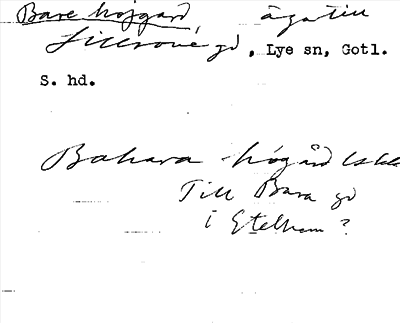 Bare höjgard, äga till
Lillrone gd, Lye sn, Gotl.
S. hd.
Bahara högård
Till Bara gd
i Etelhem?